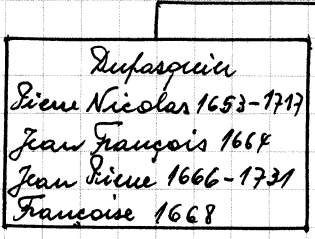 Dufasquier
Pierre Nicolas 1653-1717
Jean François 1664
Jean Pierre 1666-1731
Françoise 1668